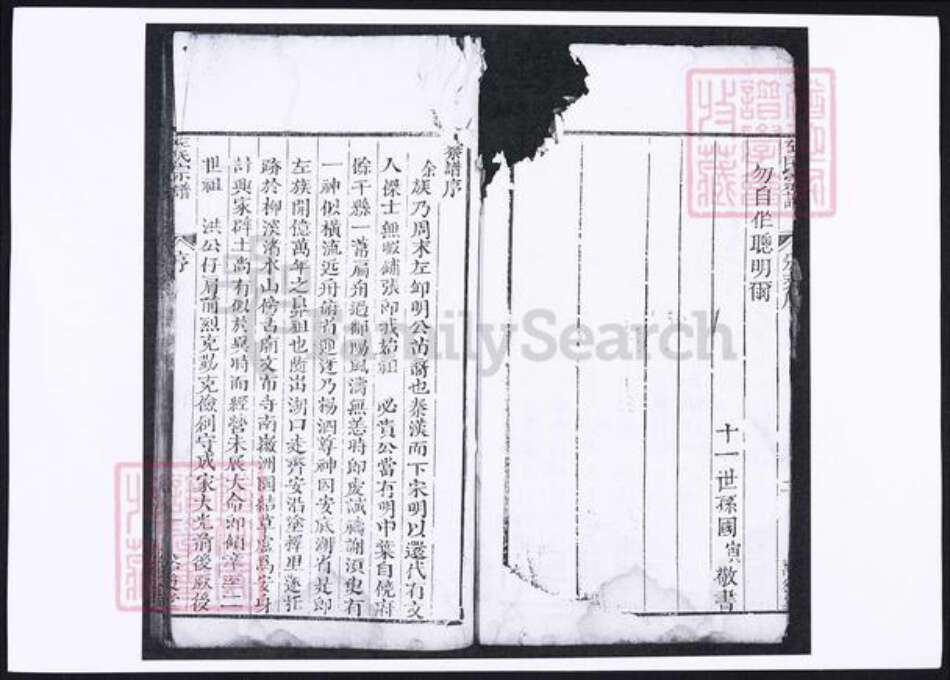 勿自作聰明爾
十一世孫國寅敬書
譜序
余族乃周末左邱明公苗裔也秦漢而下宋明以還代有文
人傑士無暇鋪張即我始祖 必貴公當有明中葉自饒府
餘干縣一葦扁舟過鄱陽風濤無恙時即虔誠禱謝須臾有
一神似橫流远舟俯首迎逢乃楊泗尊神因安底湖省是即
左族開億萬年之鼻祖也茜出湖口走齊安沿途擇里遂托
跡於柳溪滿水山傍古廟文布寺南嶽洲園結草廬為安身
計興家辟土尚有似於異時而經營未展大命即傾卒至二
世祖 洪公仔肩前烈克勤克儉創守成家大光前後厥後
氏宗譜
序
FamilySearch